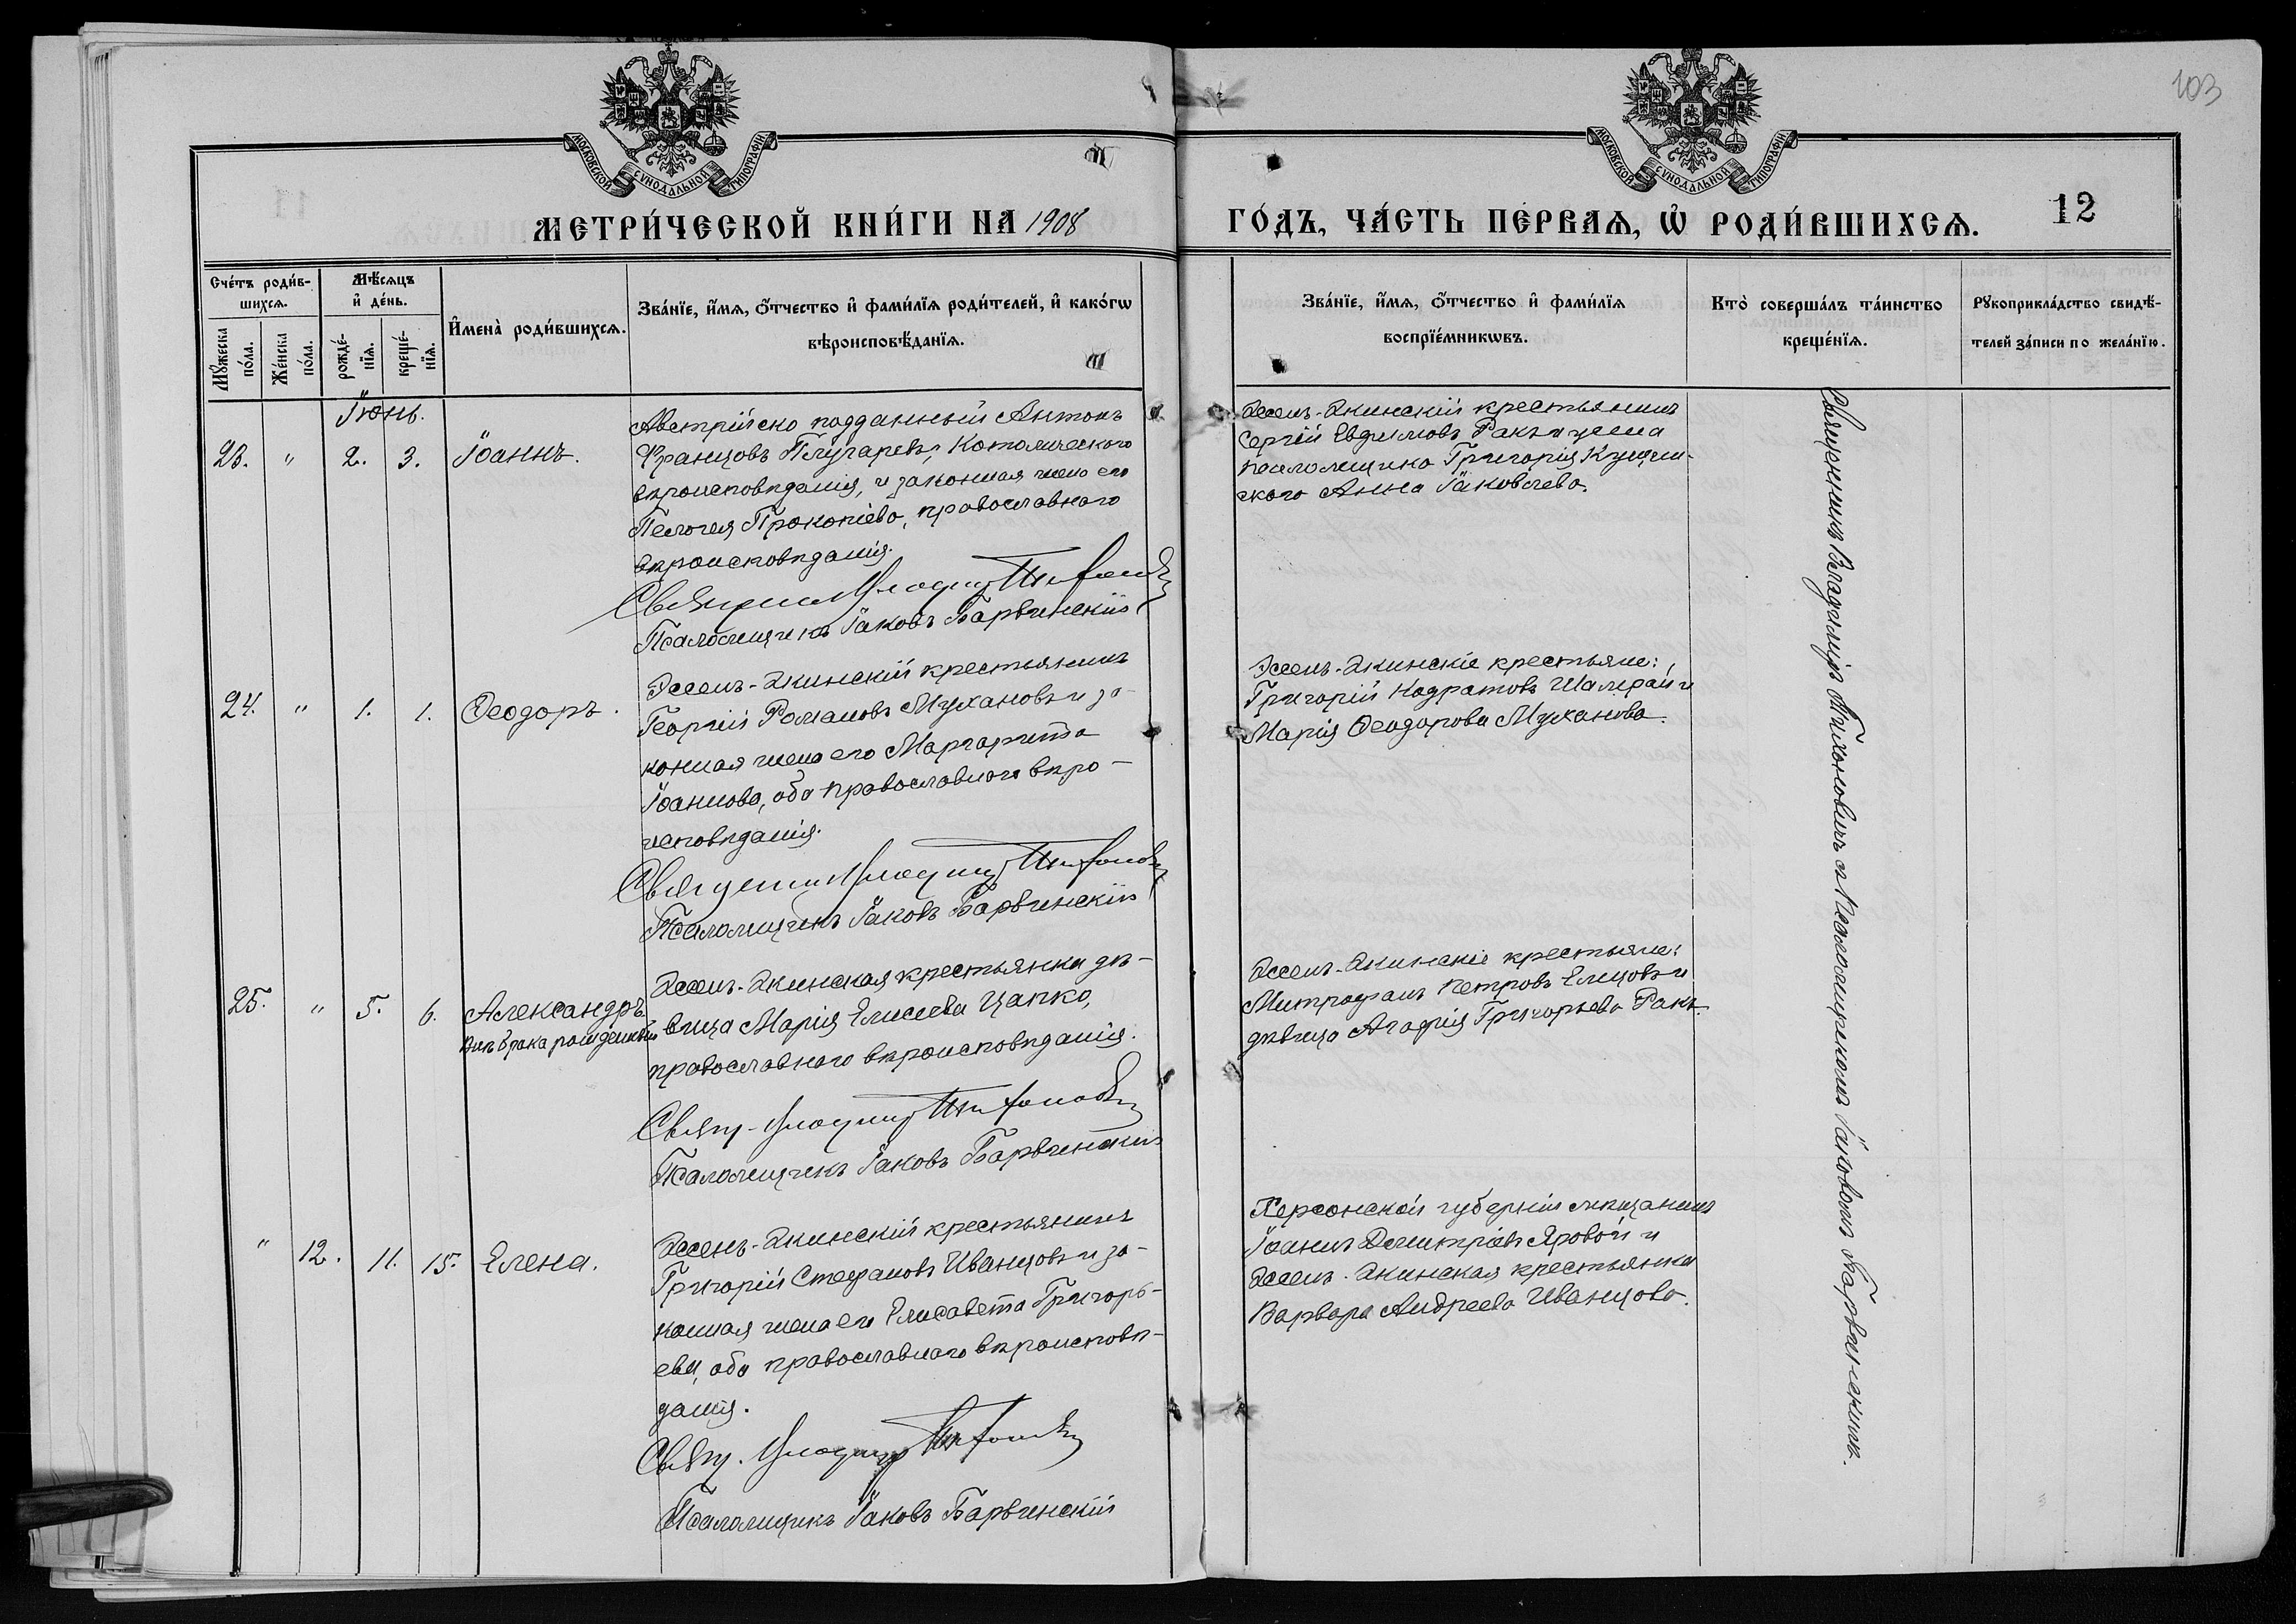 103
МОСКОВСКОЙ СѴНОДАЛЬНОЙ ТИПОГРАФІИ
МОСКОВСКОЙ СѴНОДАЛЬНОЙ ТИПОГРАФІИ
МЕТРИ́ЧЕСКОЙ КНИ́ГИ НА 1908
ГО́ДЪ, ЧА́СТЬ ПЕ́РВАѦ, Ѡ҆ РОДИ́ВШИХСѦ.
12
Сче́тъ роди́в-
шихсѧ.
Мꙋ́жеска
по́ла.
Же́нска
по́ла.
Мѣ́сѧцъ
и҆ де́нь.
рожде́-
нїѧ.
креще́-
нїѧ.
И҆мена̀ роди́вшихсѧ.
Зва́нїе, и҆́мѧ, ѻ҆́тчество и҆ фами́лїѧ роди́телей, и҆ како́гѡ
вѣроисповѣ́данїѧ.
Зва́нїе, и҆́мѧ, ѻ҆́тчество и҆ фами́лїѧ
воспрїе́мникѡвъ.
Кто̀ соверша́лъ та́инство
креще́нїѧ.
Рꙋкоприкла́дство свидѣ́-
телей за́писи по жела́нїю.
Іюнь.
23. " 2. 3. Іоаннъ.
Австрійско подданный Антонъ
Францовъ Плугаревъ, Католического
вѣроисповѣданія, и законная жена его
Пелагея Прокопіева, православного
вѣроисповѣданія.
Священникъ Владимір Тихонович
Псаломщикъ Іаковъ Барвинскій
Джсенъ-Экинскій крестьянинъ
Сергій Евфимовъ Ракъ и жена
псаломщика Григорія
ского Анна Іаковлева.
24. " 1. 1. Ѳеодоръ.
Эссенъ-Экинскій крестьянинъ
Георгій Романовъ Мухановъ и за-
конная жена его Маргарита
Іоаннова, оба православного вѣро-
исповѣданія.
Священник Владимір Тихонович
Псаломщикъ Іаковъ Барвинскій
Эссенъ-Экинскіе крестьяне:
Григорій Кодратовъ Шалерай и
Марія Ѳеодорова Муханова.
25. " 5. 6. Александръ
внѣ брака рожденный
Эссенъ-Экинская крестьянка дѣ-
вица Марія Елисеева Цапко,
православного вѣроисповѣданія.
Свящ. Владимір Тихонович
Псаломщикъ Іаковъ Барвинскій
Эссенъ-Экинскіе крестьяне:
Митрофанъ Петровъ Елицовъ и
дѣвица Агафія Григорьева Ракъ.
" 12. 11. 15. Елена.
Эссенъ-Экинскій крестьянинъ
Григорій Стефановъ Иванцовъ и за-
конная жена его Елисавета Григорь-
ева, оба православного вѣроисповѣ-
данія.
Свящ. Владимір Тихонович
Псаломщикъ Іаковъ Барвинскій
Херсонской губерніи мѣщанинъ
Іоаннъ Димитріевъ Яровой и
Эссенъ-Экинская крестьянка
Варвара Андреева Иванцова.
Священникъ Владиміръ Тихоновичъ съ Псаломщикомъ Іаковомъ Барвинскимъ.